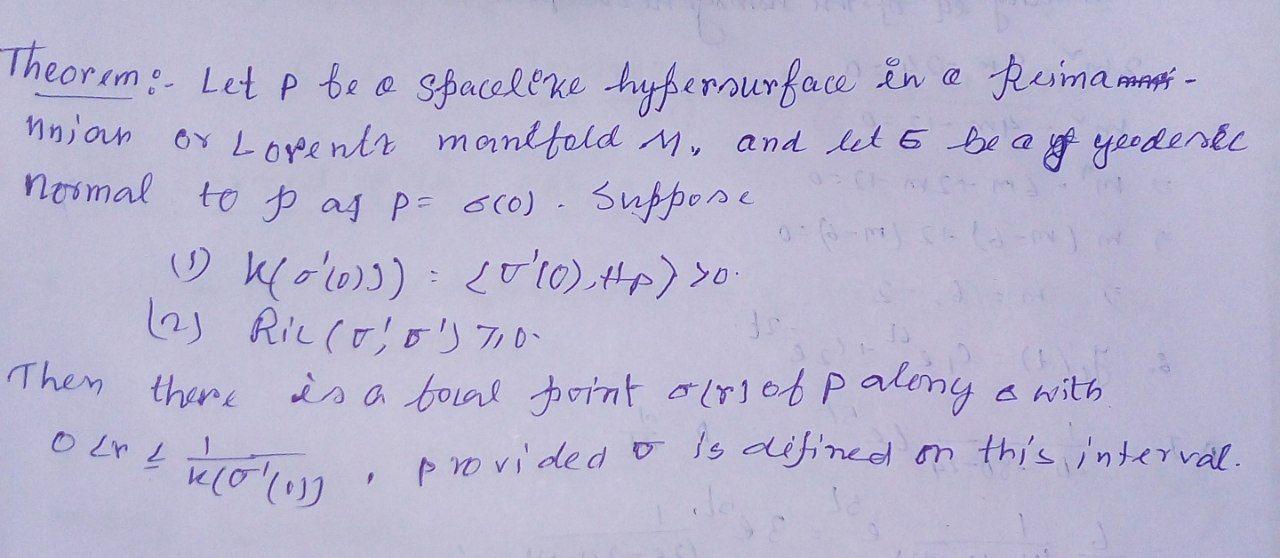 Theorem :- Let P be a spacelike hypersurface in a Reima-
nnian or Lorentz manifold M, and let σ be a geodesic
normal to P at p = σ(0). Suppose
(1) k(σ'(0))) = <σ'(0), Hp> >0.
(2) Ric (σ', σ') ≥ 0.
Then there is a focal point σ(r) of P along σ with
0 < r ≤ 1/k(σ'(0)), provided σ is defined on this interval.